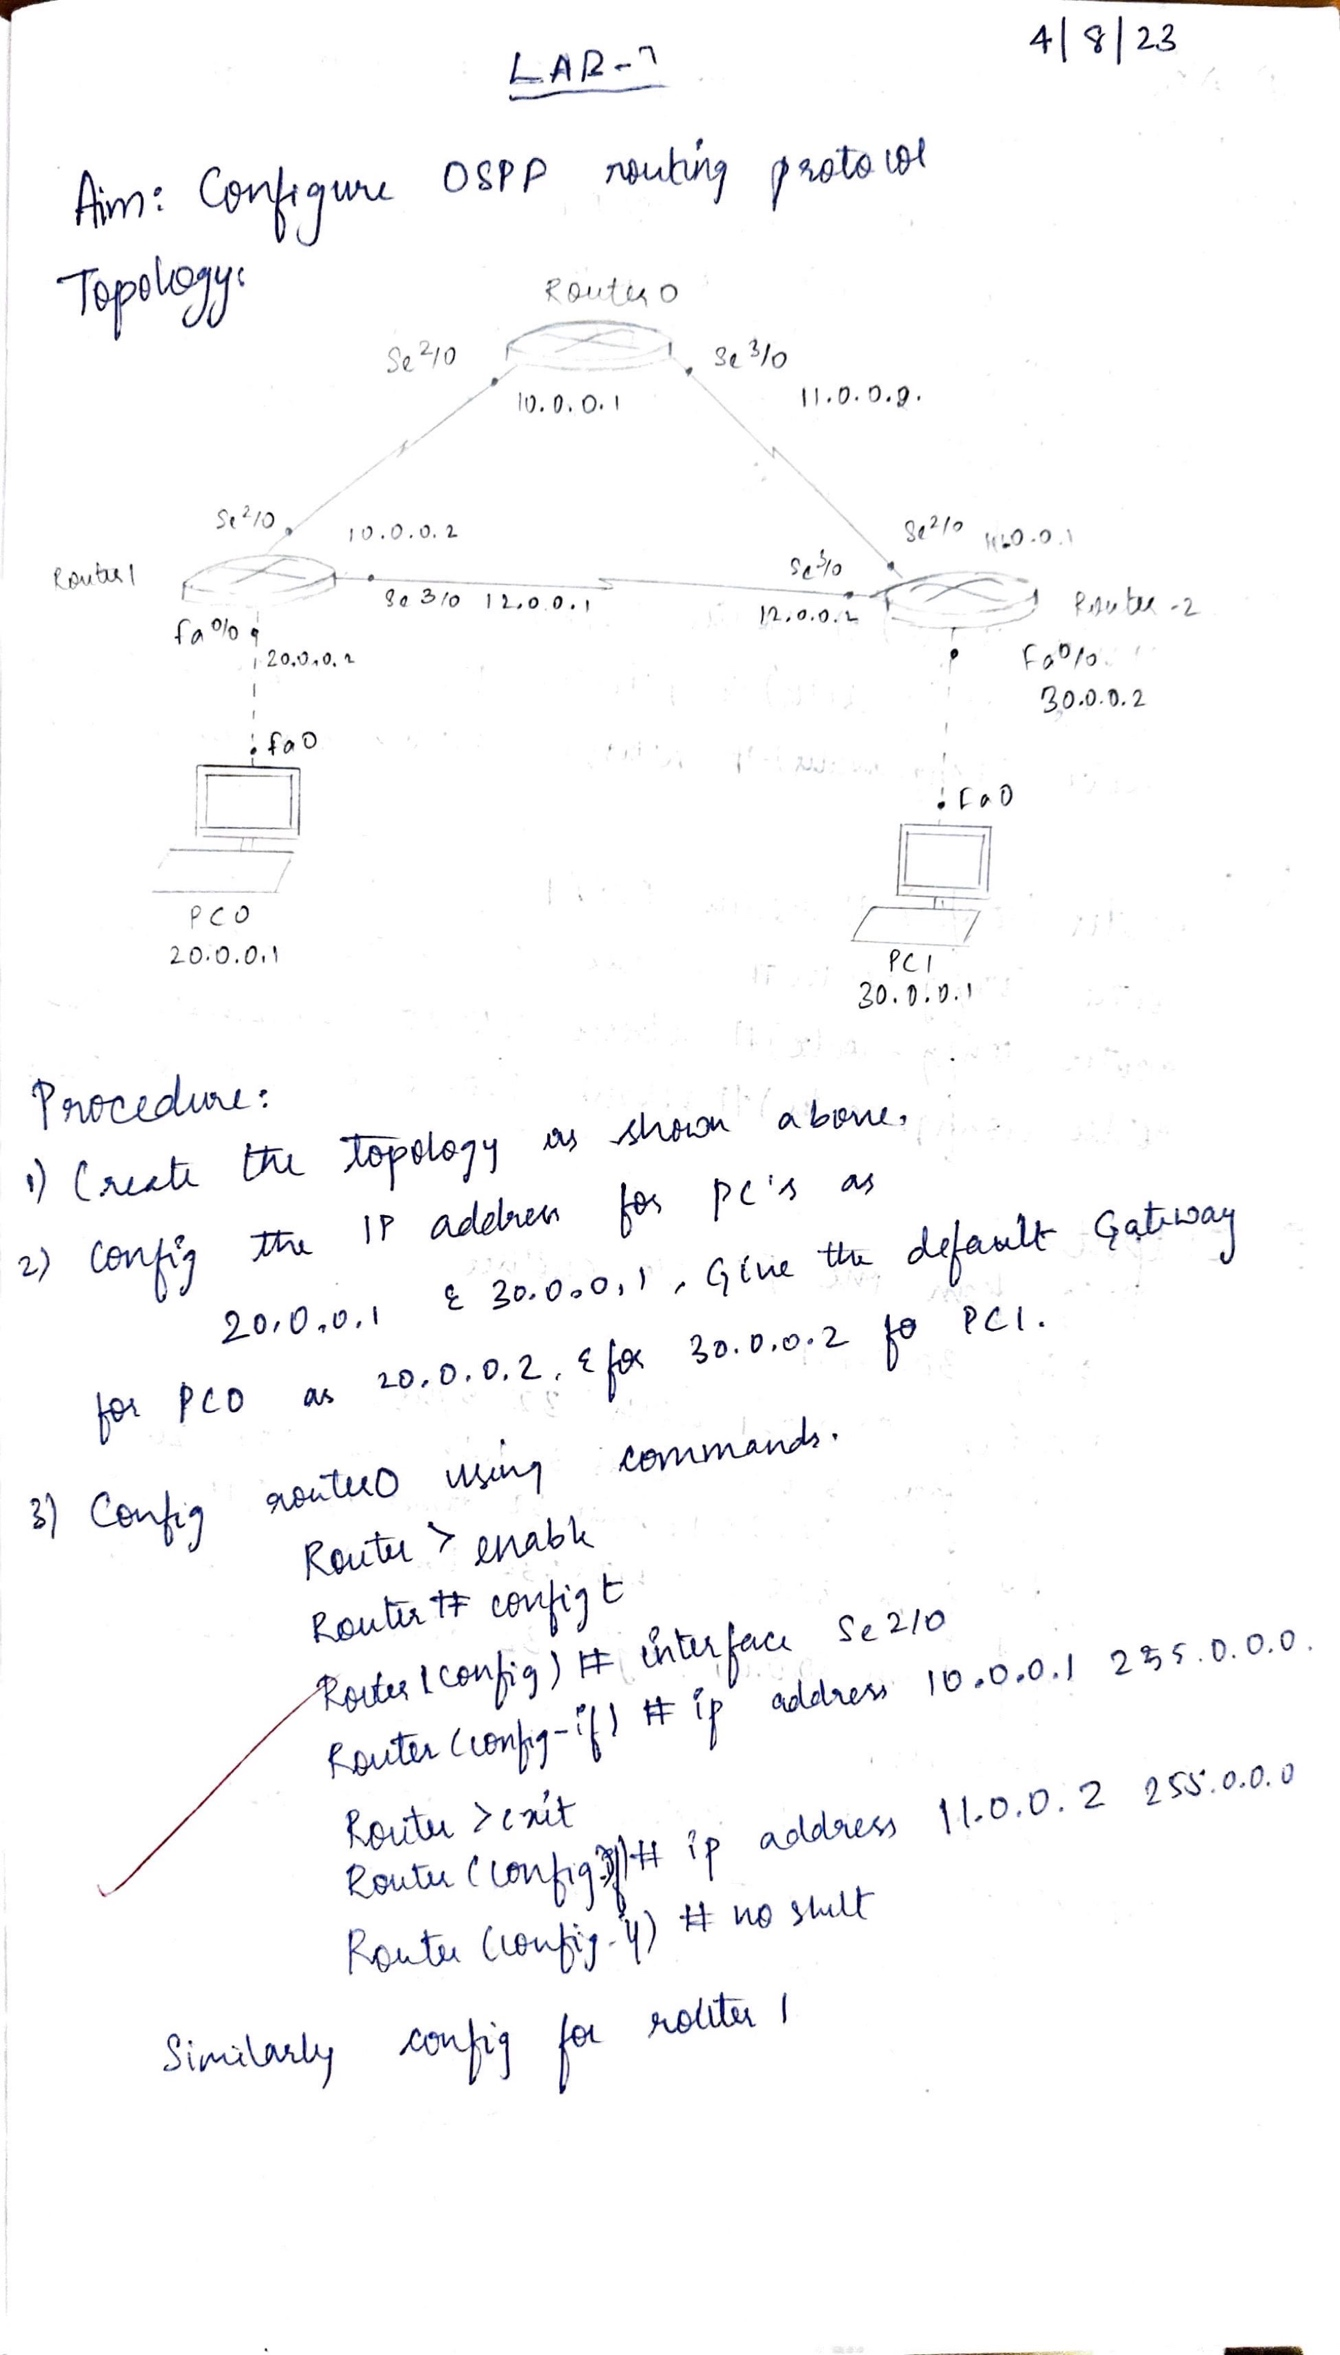 4/8/23
LAB-7
Aim: Configure OSPP routing protocol
Topology:
Router 0
Se 2/0
Se 3/0
10.0.0.1
11.0.0.2.
Se 2/0
10.0.0.2
Se 2/0
Router 1
Se 3/0
Se 3/0 12.0.0.1
12.0.0.2
Router -2
fa 0/0
20.0.0.2
Fa 0/0
30.0.0.2
fa0
Fa0
PC0
20.0.0.1
PC1
30.0.0.1
Procedure:
1) Create the topology as shown above.
2) Config the IP address for PC's as
20.0.0.1 & 30.0.0.1, Give the default Gateway
for PC0 as 20.0.0.2, & for 30.0.0.2 fo PC1.
3) Config router0 using commands.
Router > enable
Router # config t
Router (config) # interface Se 2/0
Router (config-if) # ip address 10.0.0.1 255.0.0.0.
Router > exit
Router (config-if) # ip address 11.0.0.2 255.0.0.0
Router (config-if) # no shut
Similarly config for router 1